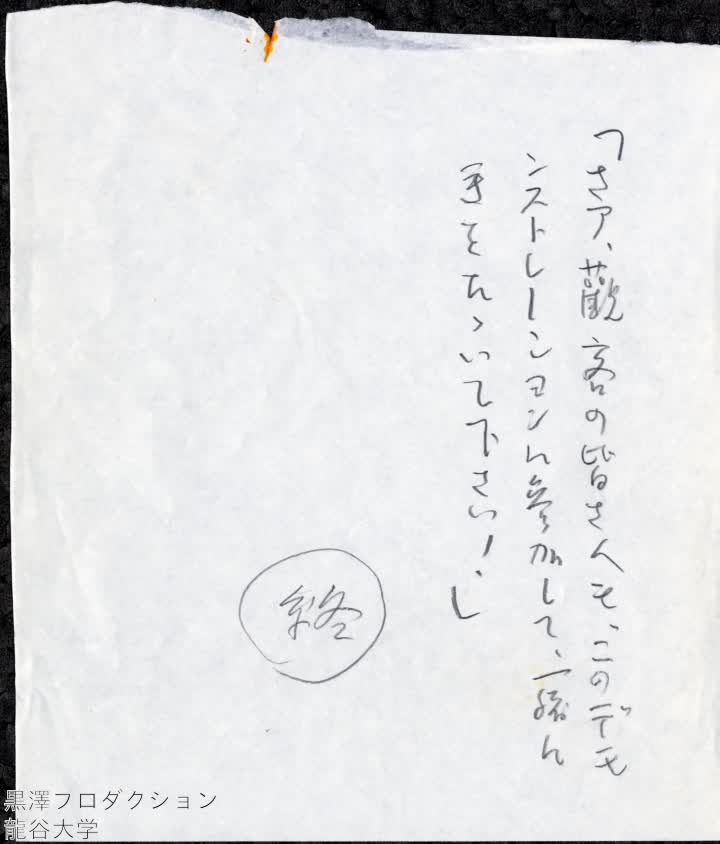 「さア、觀客の皆さんも、このデモ
ンストレーションに参加して、一緒に
手をたゝいて下さい！」
終
黒澤フロダクション
龍谷大学